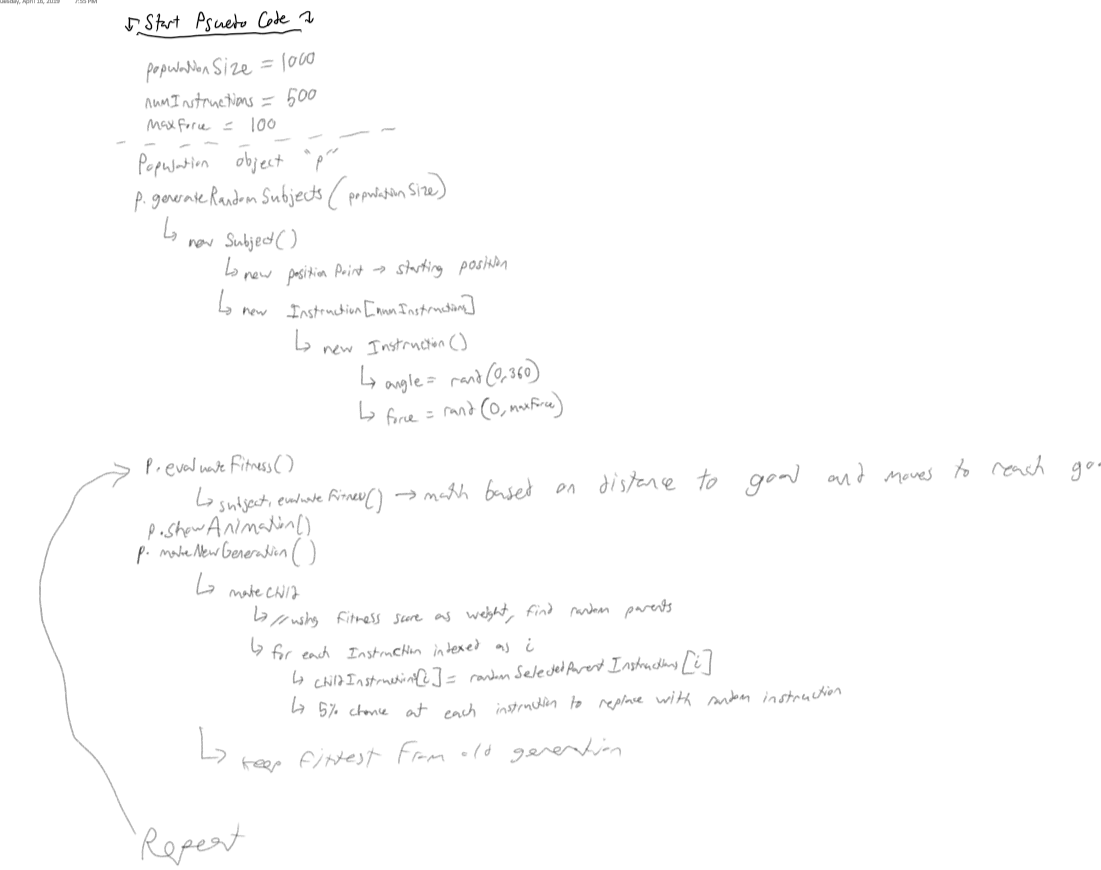 Tuesday, April 16, 2019 7:55 PM
Start Psueto Code
populationSize = 1000
numInstructions = 500
maxForce = 100
Population object "p"
p.generateRandomSubjects(populationSize)
new Subject()
new position Point → starting position
new Instruction[numInstruction]
new Instruction()
angle = rand(0,360)
force = rand(0, maxForce)
p.evaluateFitness()
subject.evaluateFitness() → math based on distance to goal and moves to reach go
p.showAnimation()
p.makeNewGeneration()
make child
//using fitness score as weight, find random parents
for each Instruction indexed as i
childInstruction[i] = randomSelectedParentInstructions[i]
5% chance at each instruction to replace with random instruction
keep fittest from old generation
Repeat